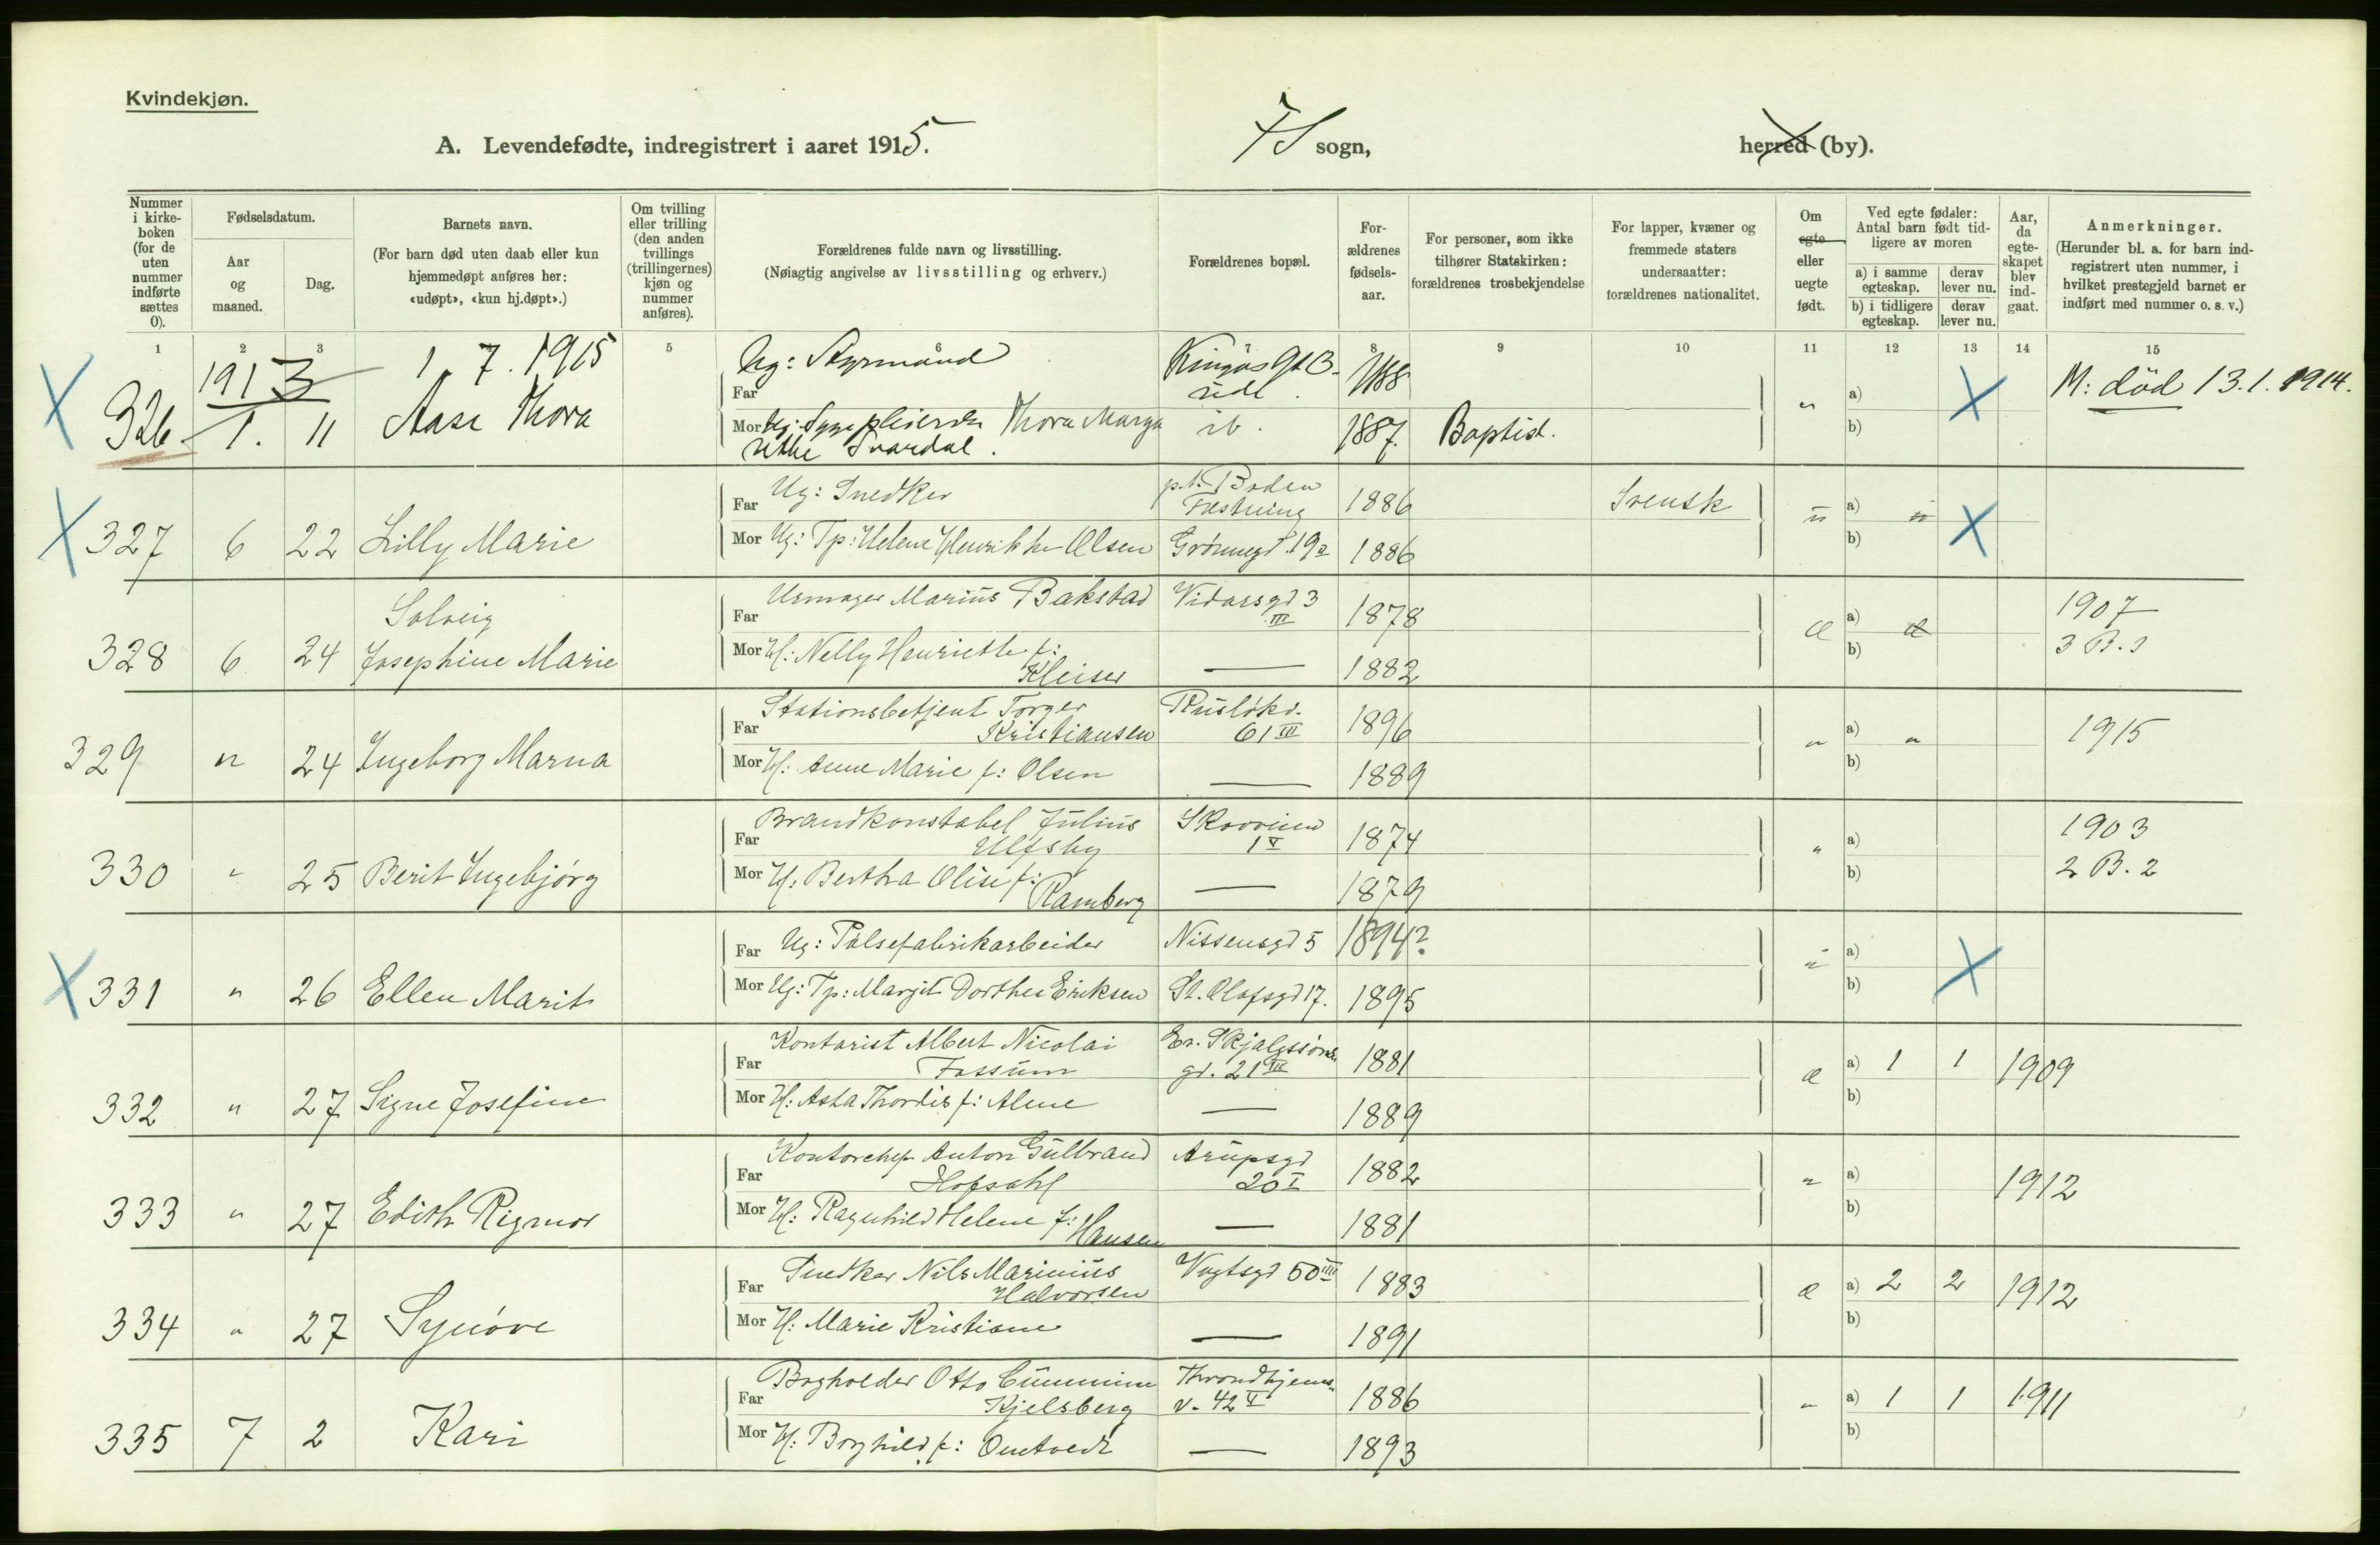 Kvindekjøn.
A. Levendefødte, indregistrert i aaret 1915.
7 S sogn,
herred (by).
Nummer i kirkeboken (for de uten nummer indførte sættes 0).
Fødselsdatum.
Aar og maaned.
Dag.
Barnets navn.
(For barn død uten daab eller kun hjemmedøpt anføres her: «udøpt», «kun hj.døpt».)
Om tvilling eller trilling (den anden tvillings (trillingernes) kjøn og nummer anføres).
Forældrenes fulde navn og livsstilling.
(Nøiagtig angivelse av livsstilling og erhverv.)
Forældrenes bopæl.
Forældrenes fødselsaar.
For personer, som ikke tilhører Statskirken: forældrenes trosbekjendelse
For lapper, kvæner og fremmede staters undersaatter: forældrenes nationalitet.
Om egte eller uegte født.
Ved egte fødsler: Antal barn født tidligere av moren
a) i samme egteskap.
derav lever nu.
b) i tidligere egteskap.
derav lever nu.
Aar, da egteskapet blev indgaat.
Anmerkninger.
(Herunder bl. a. for barn indregistrert uten nummer, i hvilket prestegjeld barnet er indført med nummer o. s. v.)
1 2 3 5 6 7 8 9 10 11 12 13 14 15
1913 1. 7. 1915
X 326 1. 11 Aase Thora
Far Ug: Styrmand 1888
Mor Ug: Sygepleierske Thora Margarethe Svardal. ib. 1887. Baptist. " a) b) X
M: død 13.1.1914.
X 327 6 22 Lilly Marie
Far Ug: Snedker p.t. Boden Fæstning 1886 Svensk
Mor Ug: Tp: Helene Henrikke Olsen Grønnegd. 19a 1886 " a) " b) X
328 6 24 Solveig Josephine Marie
Far Urmager Marius Bakstad Vidarsgd 3 III 1878
Mor H: Nelly Henriette f: Kleiser — 1882 Æ a) b)
1907
3 B. 3
329 " 24 Ingeborg Marna
Far Stationsbetjent Torger Kristiansen Rusløkv. 61 III 1896
Mor H: Anne Marie f: Olsen — 1889 " a) " b) 1915
330 " 25 Berit Ingebjørg
Far Brandkonstabel Julius Ulfsby Skovveien 1 V 1874
Mor H: Bertha Olise f: Ramberg — 1879 " a) b)
1903
2 B. 2
X 331 " 26 Ellen Marit
Far Ug: Pølsefabrikarbeider Nissensgd 5 1894?
Mor Ug: Tp: Margit Dorthea Eriksen St. Olafsgd 17. 1895 " a) b) X
332 " 27 Signe Josefine
Far Kontorist Albert Nicolai Fossum Er. Skjalgssøns gd. 21 III 1881
Mor H: Asta Thordis f: Alme — 1889 æ a) 1 1 b) 1909
333 " 27 Edith Rigmor
Far Kontorchef Anton Gulbrand Hofsahl Arupsgd 20 I 1882
Mor H: Ragnhild Helene f: Hansen — 1881 " a) b) 1912
334 " 27 Synøve
Far Snedker Nils Marinius Halvorsen Vogtsgd 50 IIII 1883
Mor H: Marie Kristiane — 1891 æ a) 2 2 b) 1912
335 7 2 Kari
Far Bogholder Otto Kjelsberg Throndhjems v. 42 V 1886
Mor H: Borghild f: Omtvedt — 1893 " a) 1 1 b) 1911